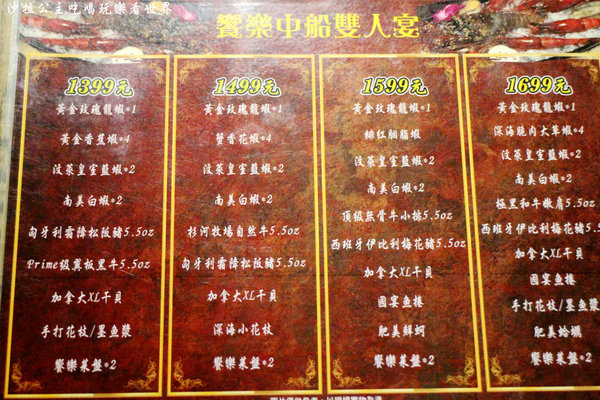 沙拉公主吃喝玩樂看世界
饗樂中船雙人宴
1399元
黃金玫瑰龍蝦*1
黃金香蕉蝦*4
汶萊皇室藍蝦*2
南美白蝦*2
匈牙利霜降松阪豬5.5oz
Prime級翼板黑牛5.5oz
加拿大XL干貝
手打花枝/墨魚漿
饗樂菜盤*2
1499元
黃金玫瑰龍蝦*1
蟹香花蝦*4
汶萊皇室藍蝦*2
南美白蝦*2
杉河牧場自然牛5.5oz
匈牙利霜降松阪豬5.5oz
加拿大XL干貝
深海小花枝
饗樂菜盤*2
1599元
黃金玫瑰龍蝦*1
緋紅胭脂蝦
汶萊皇室藍蝦*2
南美白蝦*2
頂級無骨牛小排5.5oz
西班牙伊比利梅花豬5.5oz
加拿大XL干貝
國宴魚捲
肥美鮮蚵
饗樂菜盤*2
1699元
黃金玫瑰龍蝦*1
深海脆肉大草蝦*4
汶萊皇室藍蝦*2
南美白蝦*2
極黑和牛嫩肩5.5oz
西班牙伊比利梅花豬5.5oz
加拿大XL干貝
國宴魚捲
手打花枝/墨魚漿
肥美蛤蠣
饗樂菜盤*2